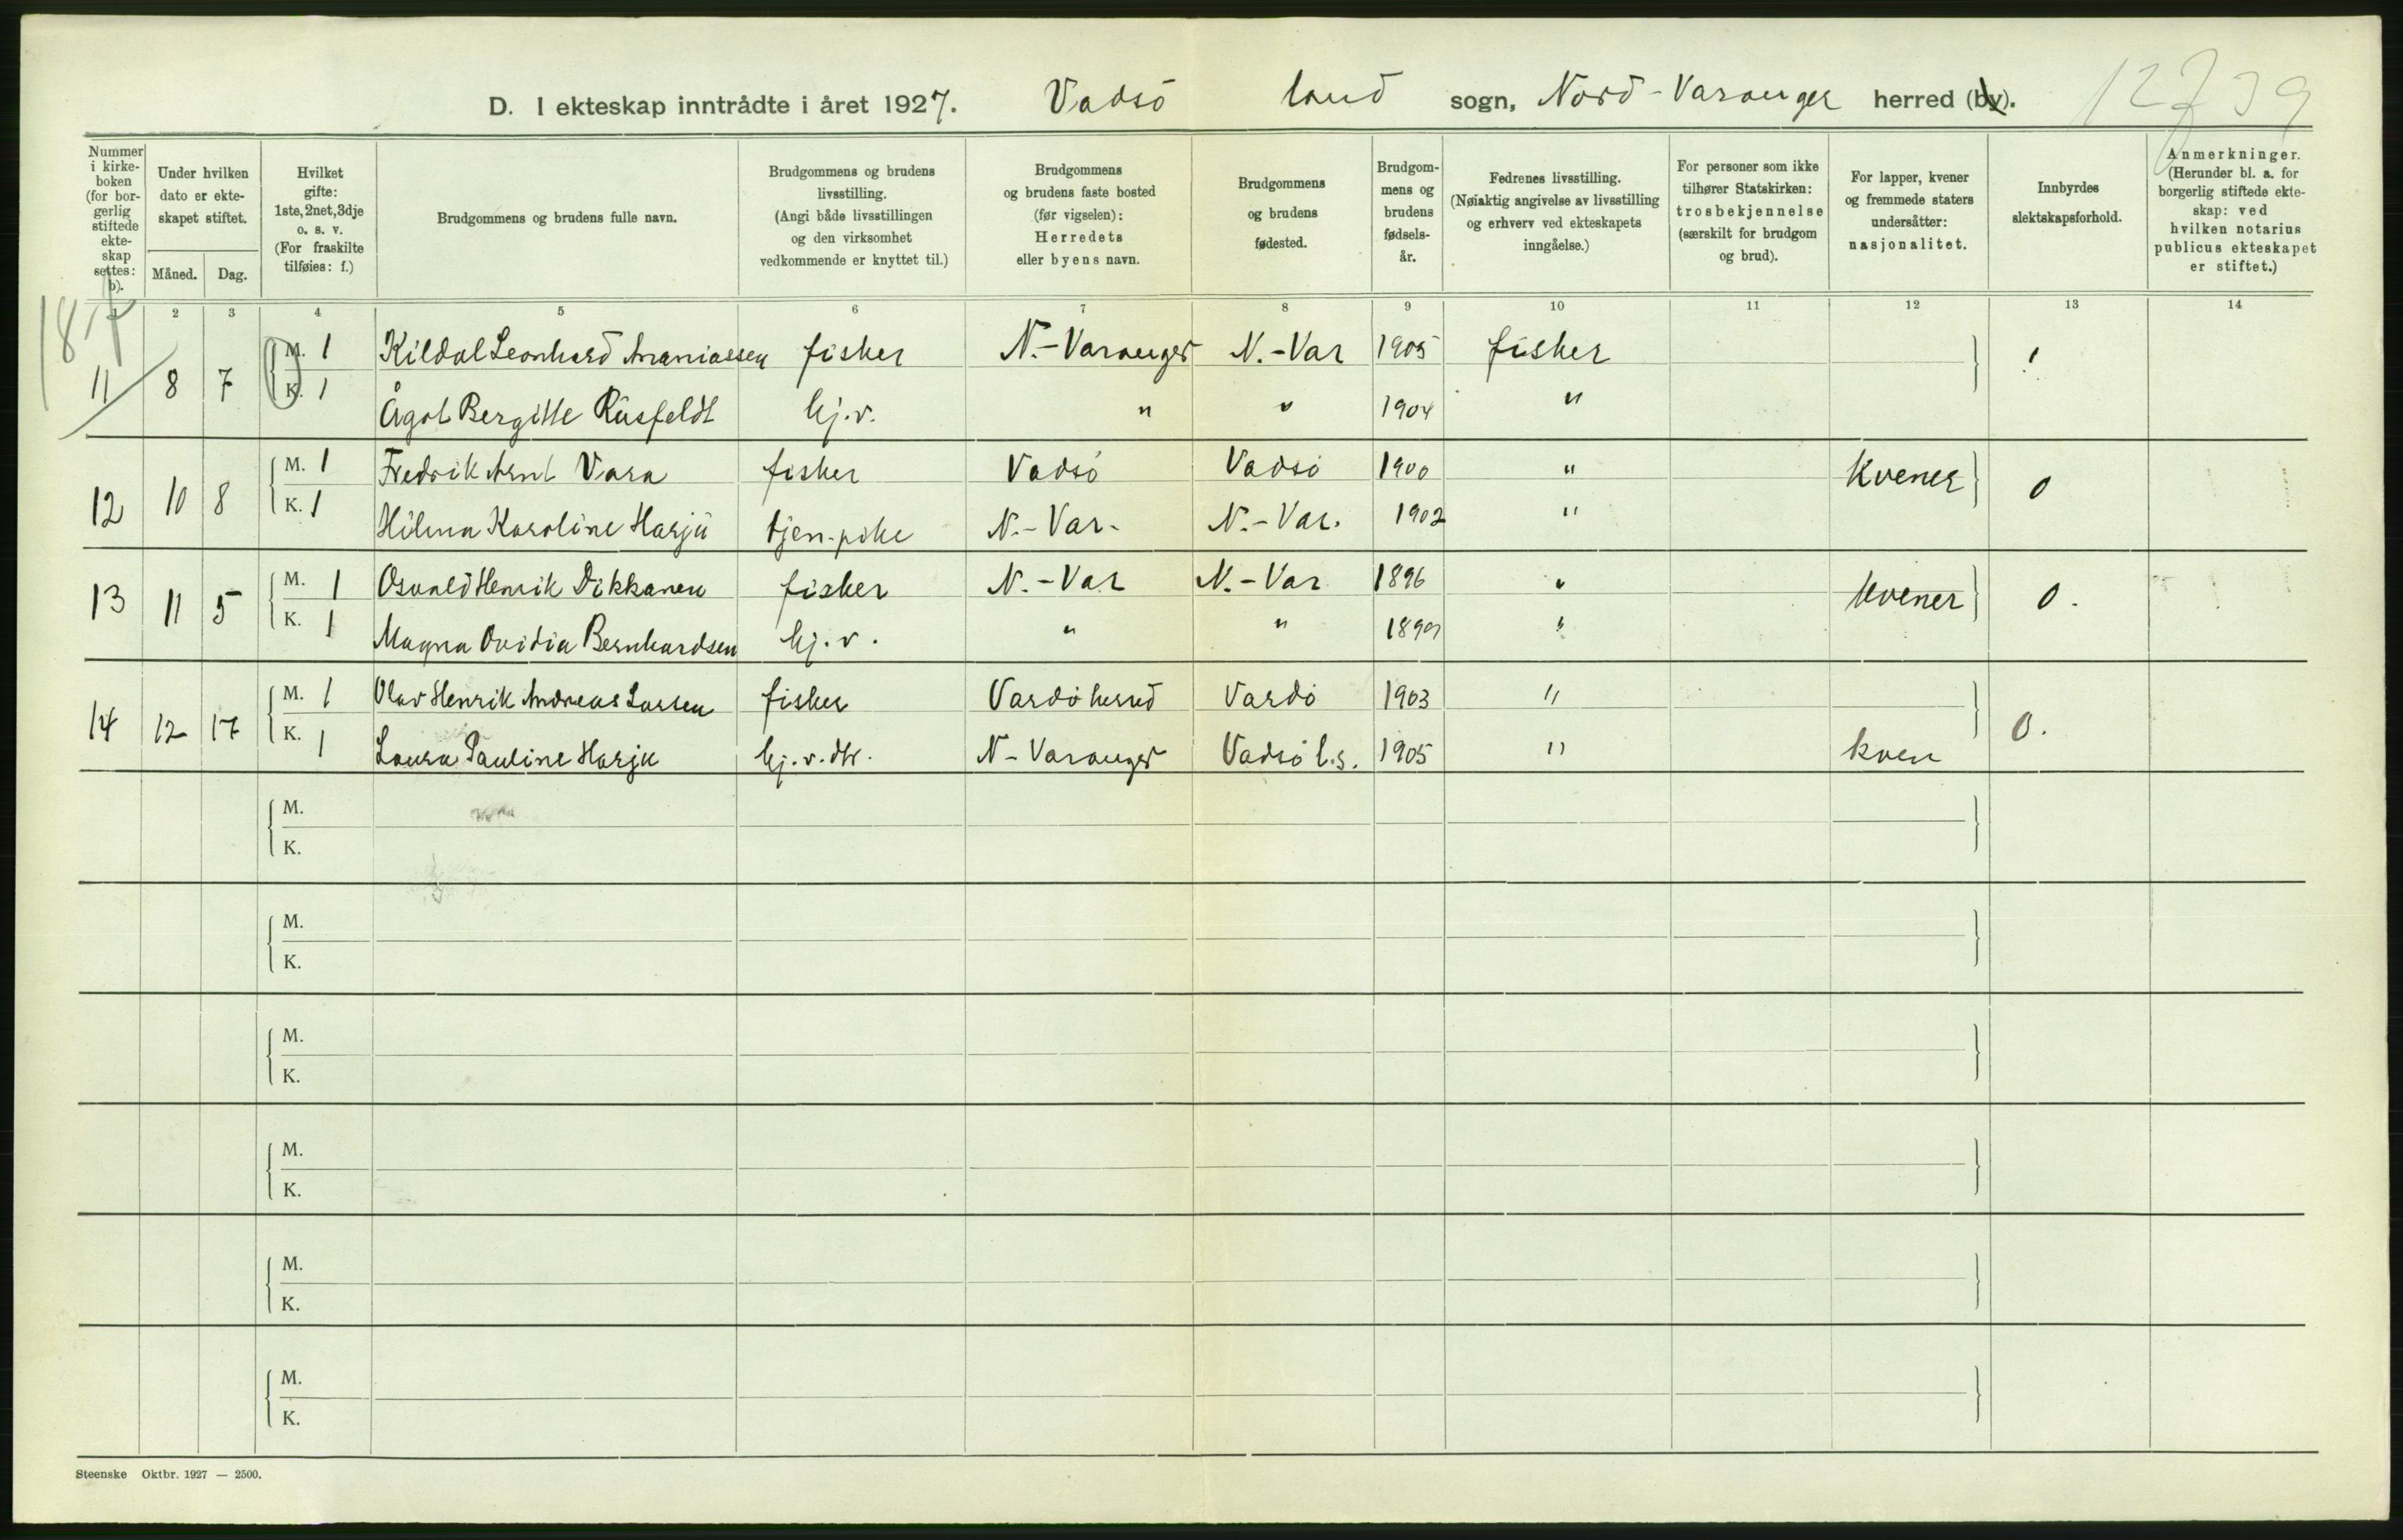 D. I ekteskap inntrådte i året 1927. Vadsö land sogn, Nord-Varanger herred (by). 12739
Nummer i kirkeboken (for borgerlig stiftede ekteskap settes: b).
Under hvilken dato er ekteskapet stiftet.
Måned. Dag.
Hvilket gifte: 1ste, 2net, 3dje o. s. v. (For fraskilte tilføies: f.)
Brudgommens og brudens fulle navn.
Brudgommens og brudens livsstilling. (Angi både livsstillingen og den virksomhet vedkommende er knyttet til.)
Brudgommens og brudens faste bosted (før vigselen): Herredets eller byens navn.
Brudgommens og brudens fødested.
Brudgommens og brudens fødselsår.
Fedrenes livsstilling. (Nøiaktig angivelse av livsstilling og erhverv ved ekteskapets inngåelse.)
For personer som ikke tilhører Statskirken: trosbekjennelse (særskilt for brudgom og brud).
For lapper, kvener og fremmede staters undersåtter: nasjonalitet.
Innbyrdes slektskapsforhold.
Anmerkninger. (Herunder bl. a. for borgerlig stiftede ekteskap: ved hvilken notarius publicus ekteskapet er stiftet.)
1 2 3 4 5 6 7 8 9 10 11 12 13 14
11 8 7 M. 1 Kildal Leonhard Ananiassen fisker N.-Varanger N.-Var 1905 fisker
K. 1 Ågot Bergitte Rusfeldt hj.v. " " 1904 "
12 10 8 M. 1 Fredrik Arnt Vara fisker Vadsö Vadsö 1900 " Kvener 0
K. 1 Hilma Karoline Harju tjen.pike N.-Var. N.-Var. 1902 "
13 11 5 M. 1 Osvald Henrik Dikkanen fisker N.-Var N.-Var 1896 " Kvener 0.
K. 1 Magna Ovidia Bernhardsen hj.v. " " 1899 "
14 12 17 M. 1 Olav Henrik Andreas Larsen fisker Vardö herred Vardö 1903 " 0.
K. 1 Laura Pauline Harju hj.v.dtr. N-Varanger Vadsö l.s. 1905 " kven
M.
K.
M.
K.
M.
K.
M.
K.
M.
K.
M.
K.
Steenske Oktbr. 1927 — 2500.